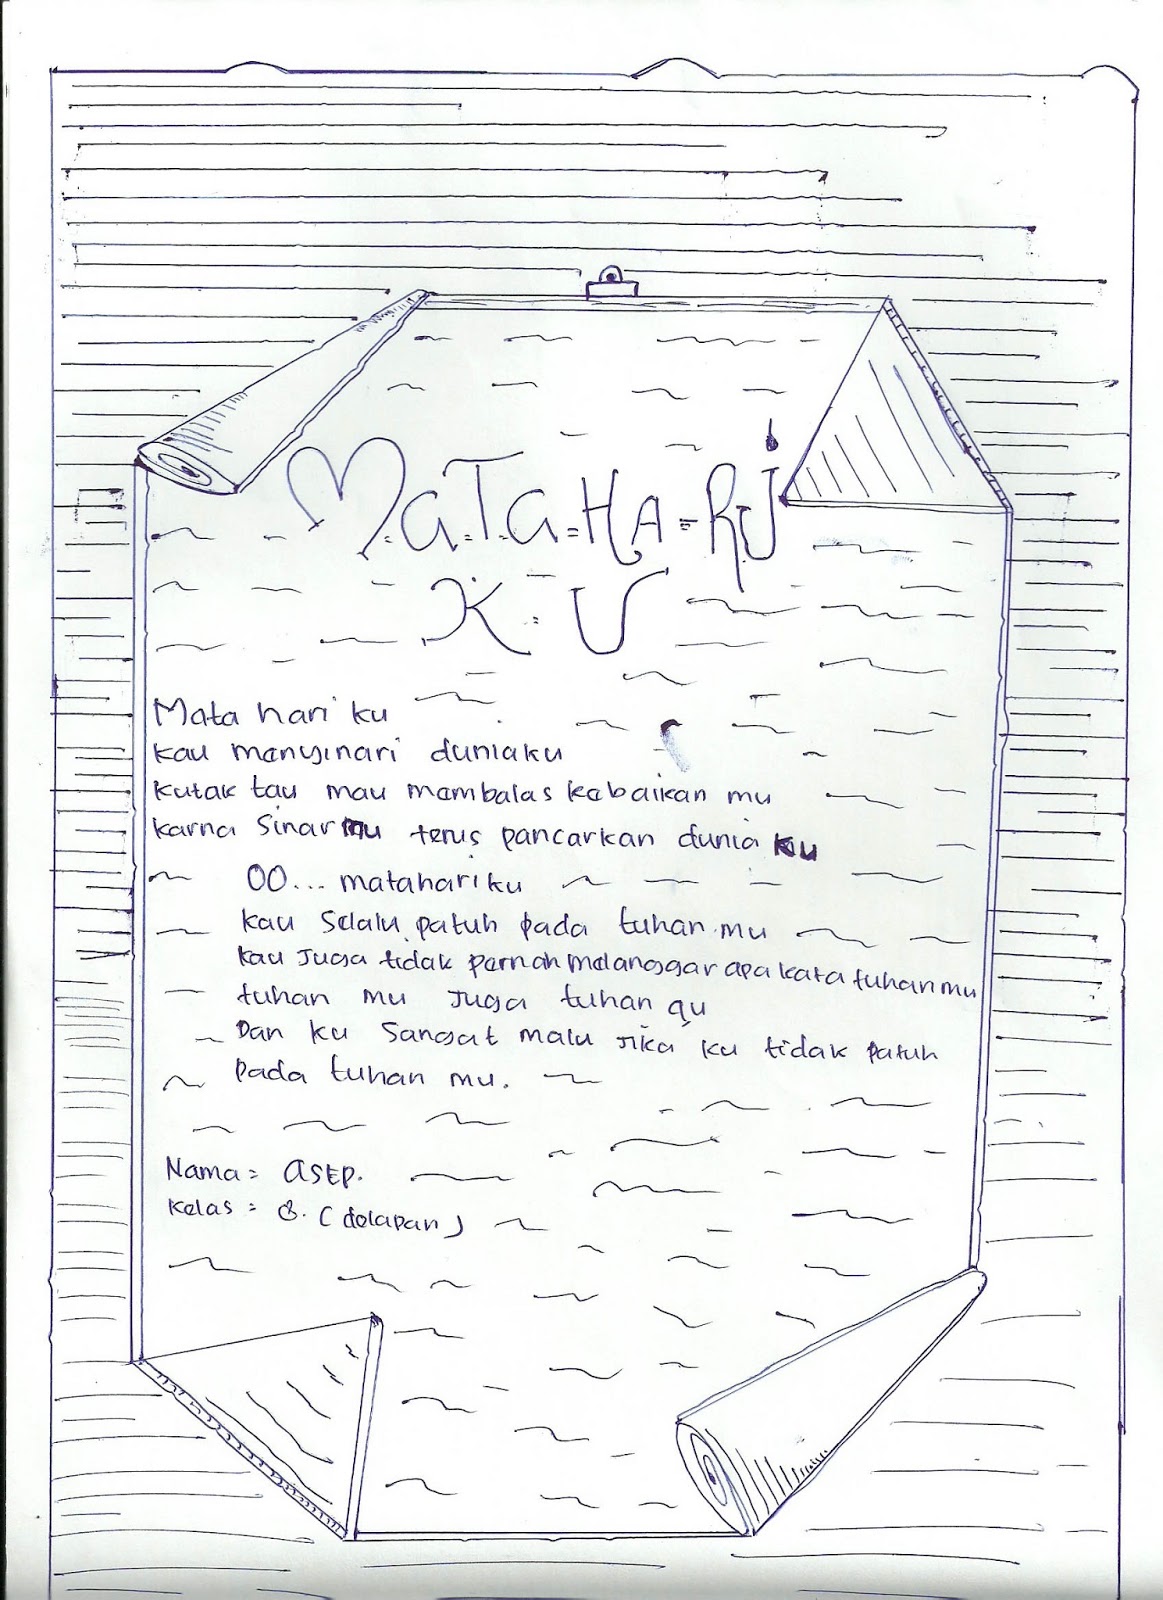 MaTaHARi
KU
Mata hari ku
kau menyinari duniaku
kutak tau mau membalas kebaikan mu
karna sinarmu terus pancarkan dunia ku
OO... matahariku
kau selalu patuh pada tuhan mu
kau juga tidak pernah melanggar apa kata tuhan mu
tuhan mu juga tuhan qu
Dan ku sangat malu jika ku tidak patuh
pada tuhan mu.
Nama = ASEP.
Kelas = 8. (delapan)